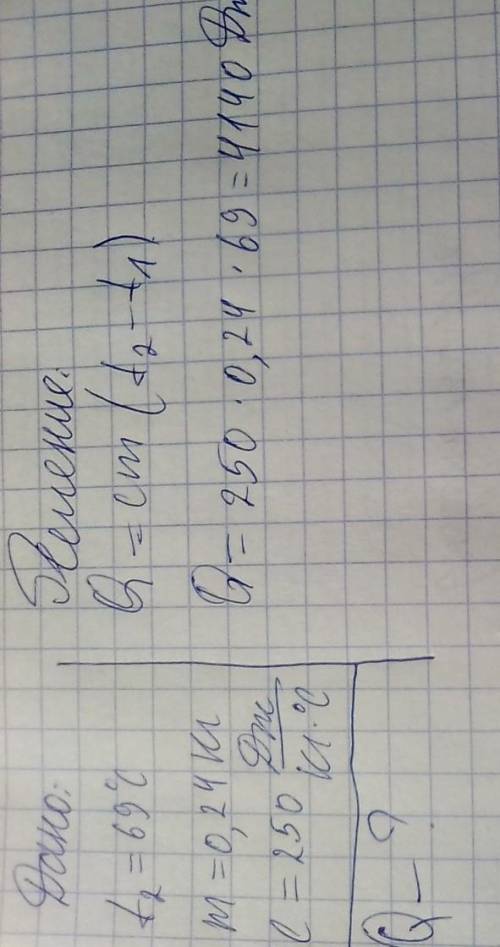 Дано:
t₂ = 69°C
m = 0,24 кг
c = 250 Дж/кг·°C
Q – ?
Решение:
Q = cm (t₂ – t₁)
Q = 250 · 0,24 · 69 = 4140 Дж